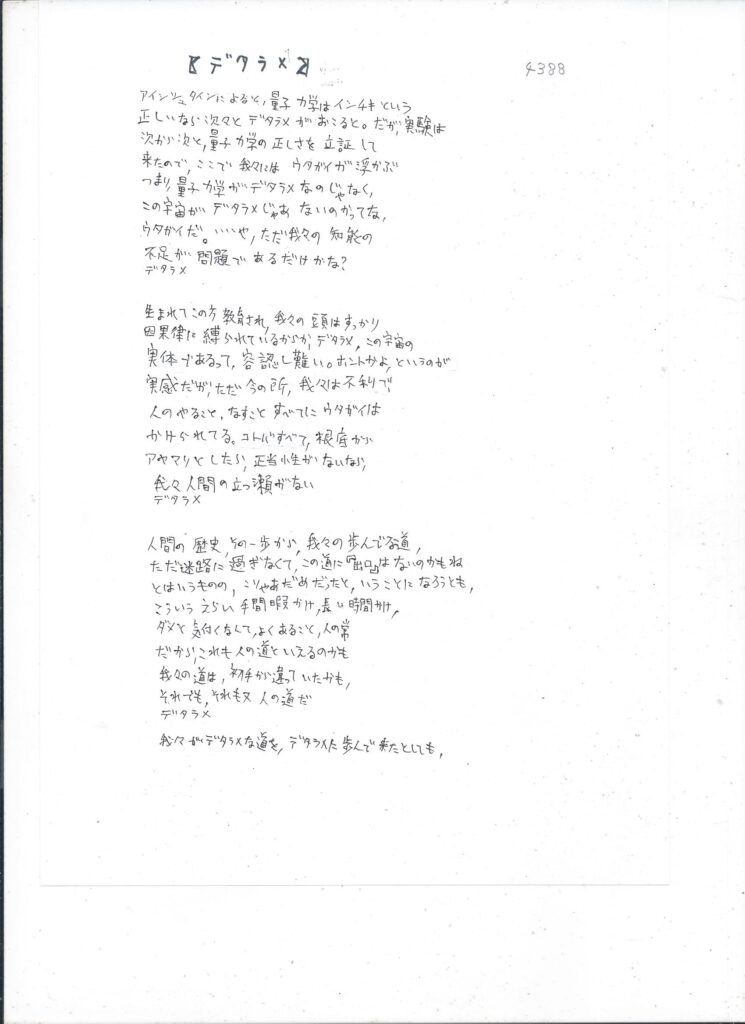 【デタラメ】
4388
アインシュタインによると,量子力学はインチキという
正しいなら次々とデタラメがおこると。だが,実験は
次から次と,量子力学の正しさを立証して
来たので,ここで我々にはウタガイが浮かぶ
つまり,量子力学がデタラメなのじゃなく,
この宇宙がデタラメじゃあないのかってな,
ウタガイだ。いいや,ただ我々の知能の
不足が問題であるだけかな?
デタラメ
生まれてこの方教育され,我々の頭はすっかり
因果律に縛られているからか,デタラメ,この宇宙の
実体であるって,容認し難い。ホントかよ,というのが
実感だが,ただ今の所,我々は不利で,
人のやること,なすことすべてにウタガイは
かけられてる。コトバすべて,根底から
アヤマリとしたら,正当性がないなら,
我々人間の立つ瀬がない
デタラメ
人間の歴史,その一歩から,我々の歩んでる道,
ただ迷路に過ぎなくて,この道に『出口』はないのかもね
とはいうものの,こりゃあだめだったと,いうことになろうとも,
こういうえらい手間暇かけ,長い時間かけ,
ダメと気付くなんて,よくあること,人の常
だから,これも人の道といえるのかも
我々の道は,初手から違っていたかも,
それでも,それも又人の道だ
デタラメ
我々がデタラメな道を,デタラメに歩んで来たとしても,